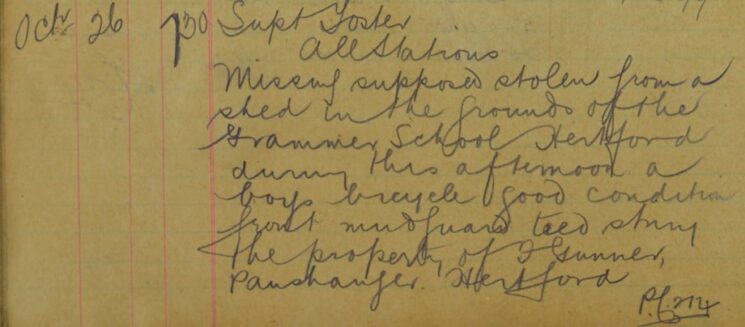 Octr 26 7 30 Supt Foster
All Stations
Missing supposed stolen from a
shed in the grounds of the
Grammer School Hertford
during this afternoon a
boys bicycle good condition
front mudguard tied string
the property of F Gunner,
Panshanger. Hertford
P.C. 274